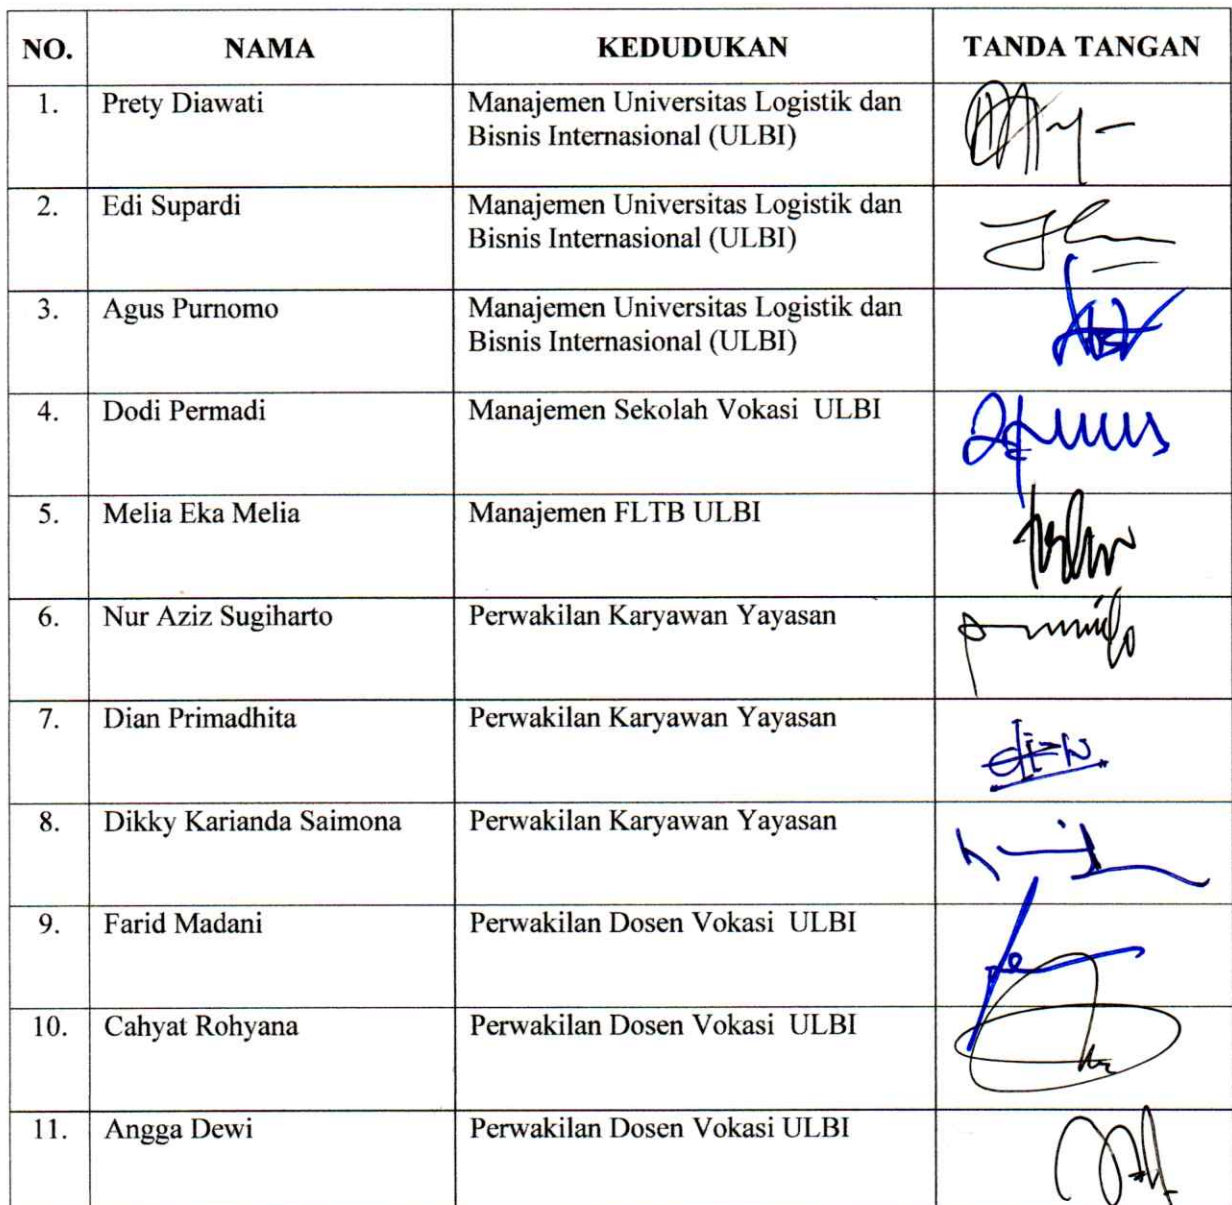 NO. NAMA KEDUDUKAN TANDA TANGAN
1. Prety Diawati Manajemen Universitas Logistik dan
Bisnis Internasional (ULBI)
2. Edi Supardi Manajemen Universitas Logistik dan
Bisnis Internasional (ULBI)
3. Agus Purnomo Manajemen Universitas Logistik dan
Bisnis Internasional (ULBI)
4. Dodi Permadi Manajemen Sekolah Vokasi ULBI
5. Melia Eka Melia Manajemen FLTB ULBI
6. Nur Aziz Sugiharto Perwakilan Karyawan Yayasan
7. Dian Primadhita Perwakilan Karyawan Yayasan
8. Dikky Karianda Saimona Perwakilan Karyawan Yayasan
9. Farid Madani Perwakilan Dosen Vokasi ULBI
10. Cahyat Rohyana Perwakilan Dosen Vokasi ULBI
11. Angga Dewi Perwakilan Dosen Vokasi ULBI